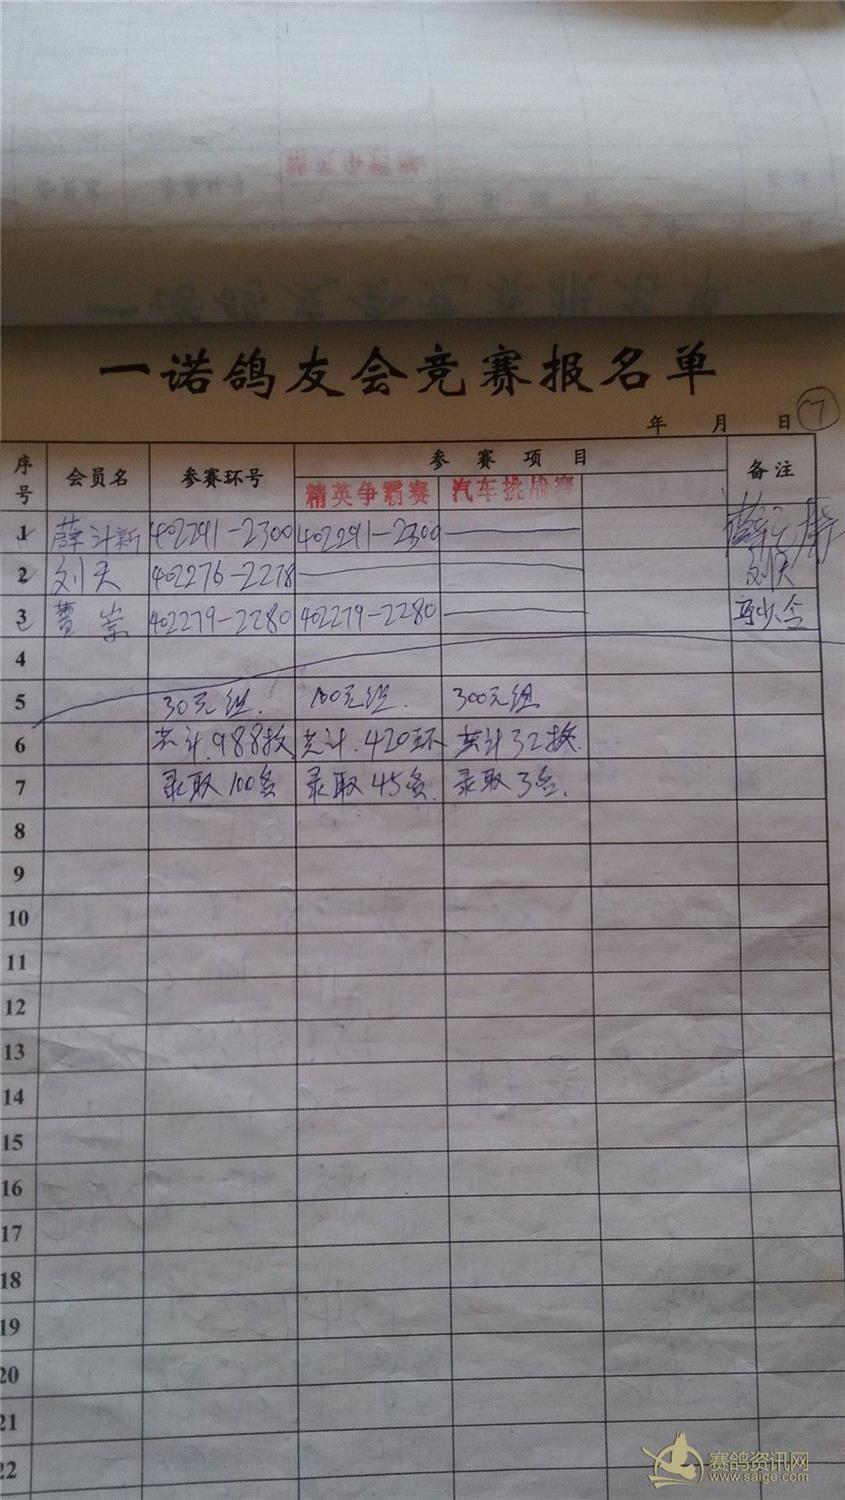 一诺鸽友会竞赛报名单
年 月 日 7
序号 会员名 参赛环号 参赛项目 备注
精英争霸赛 汽车挑战赛
1 薛计新 402291-2300 402291-2300
2 刘天 402276-2278 刘天
3 曹岽 402279-2280 402279-2280
4
5 30元组. 100元组. 300元组
6 共计.988枚 共计.420环 共计32枚.
7 录取100名 录取45名. 录取3名.
8
9
10
11
12
13
14
15
16
17
18
19
20
21
22
赛鸽资讯网
www.saige.com